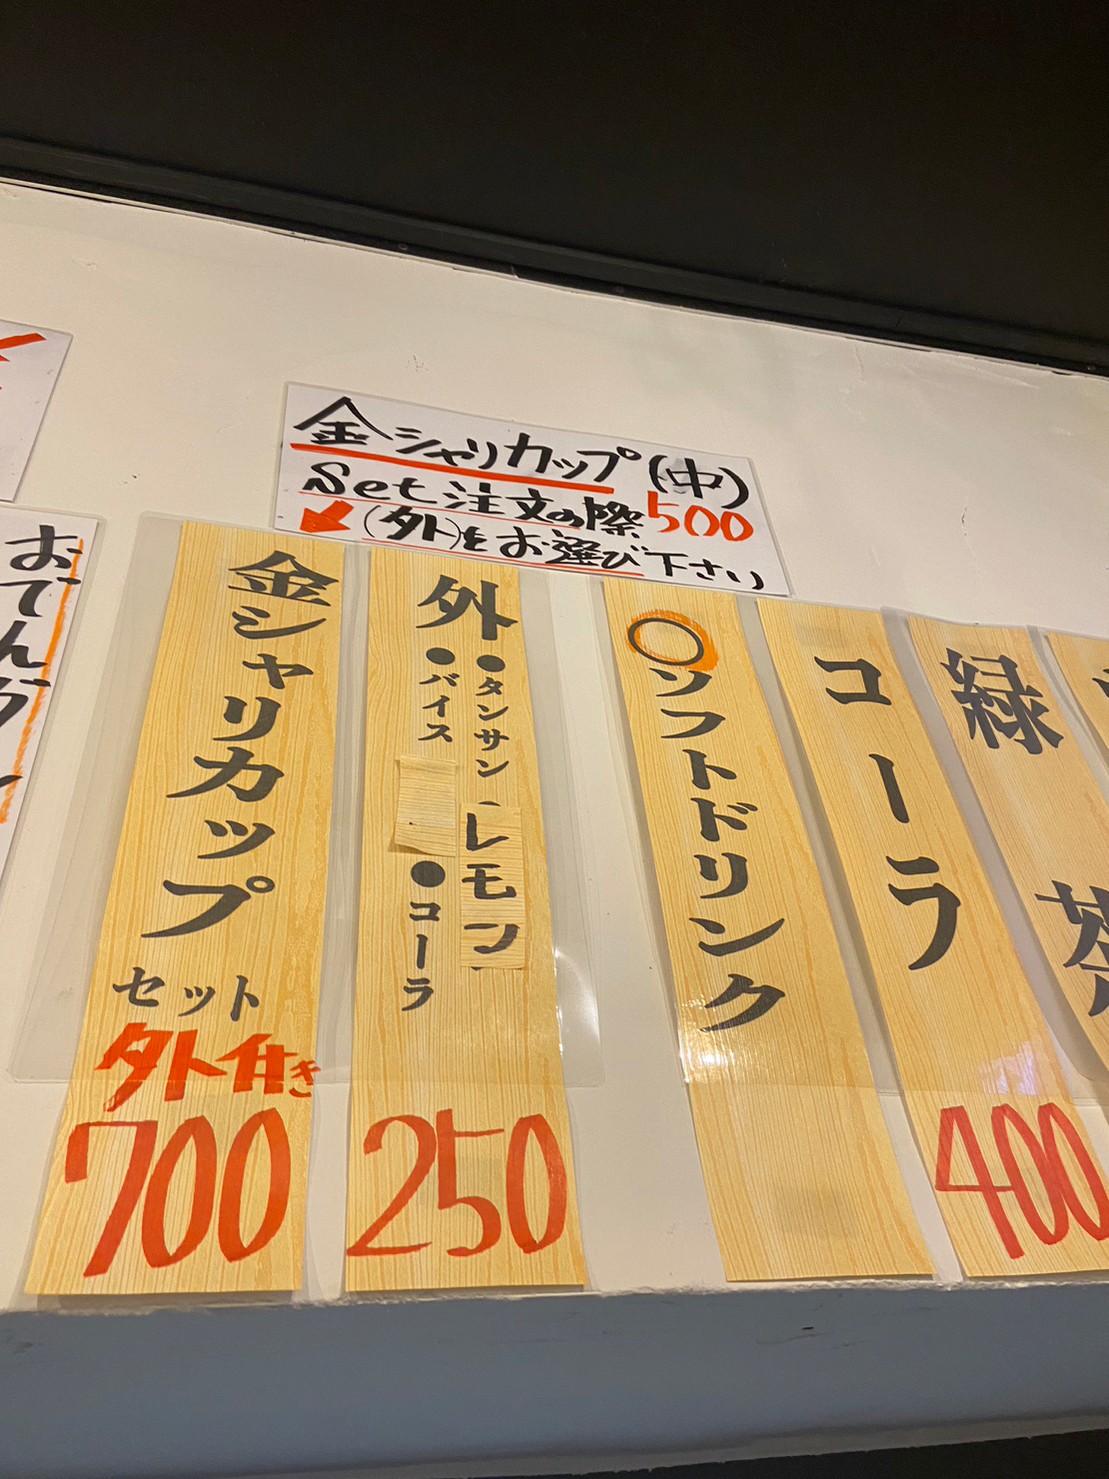 金シャリカップ(中)
Set注文の際500
(外)をお選び下さい
おでん
金シャリカップ
セット
外付き
700
外
●タンサン
レモン
●バイス
●コーラ
250
○ソフトドリンク
コーラ
400
緑茶